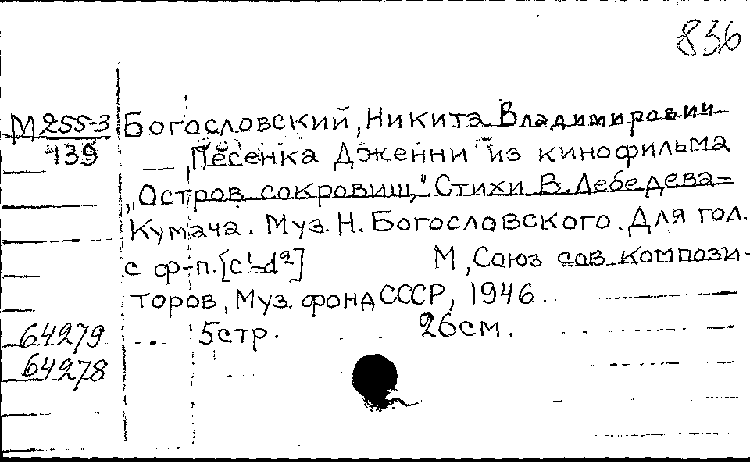 836
М 255-3 Богословский, Никита Владимирович
139 — „Песенка Дженни" из кинофильма
„Остров сокровищ". Стихи В. Лебедева-
Кумача. Муз. Н. Богословского. Для гол.
с ф-п. [c¹-d²] М, Союз сов. компози-
торов, Муз. фонд СССР, 1946.
64279 5 стр. 26 см.
64278